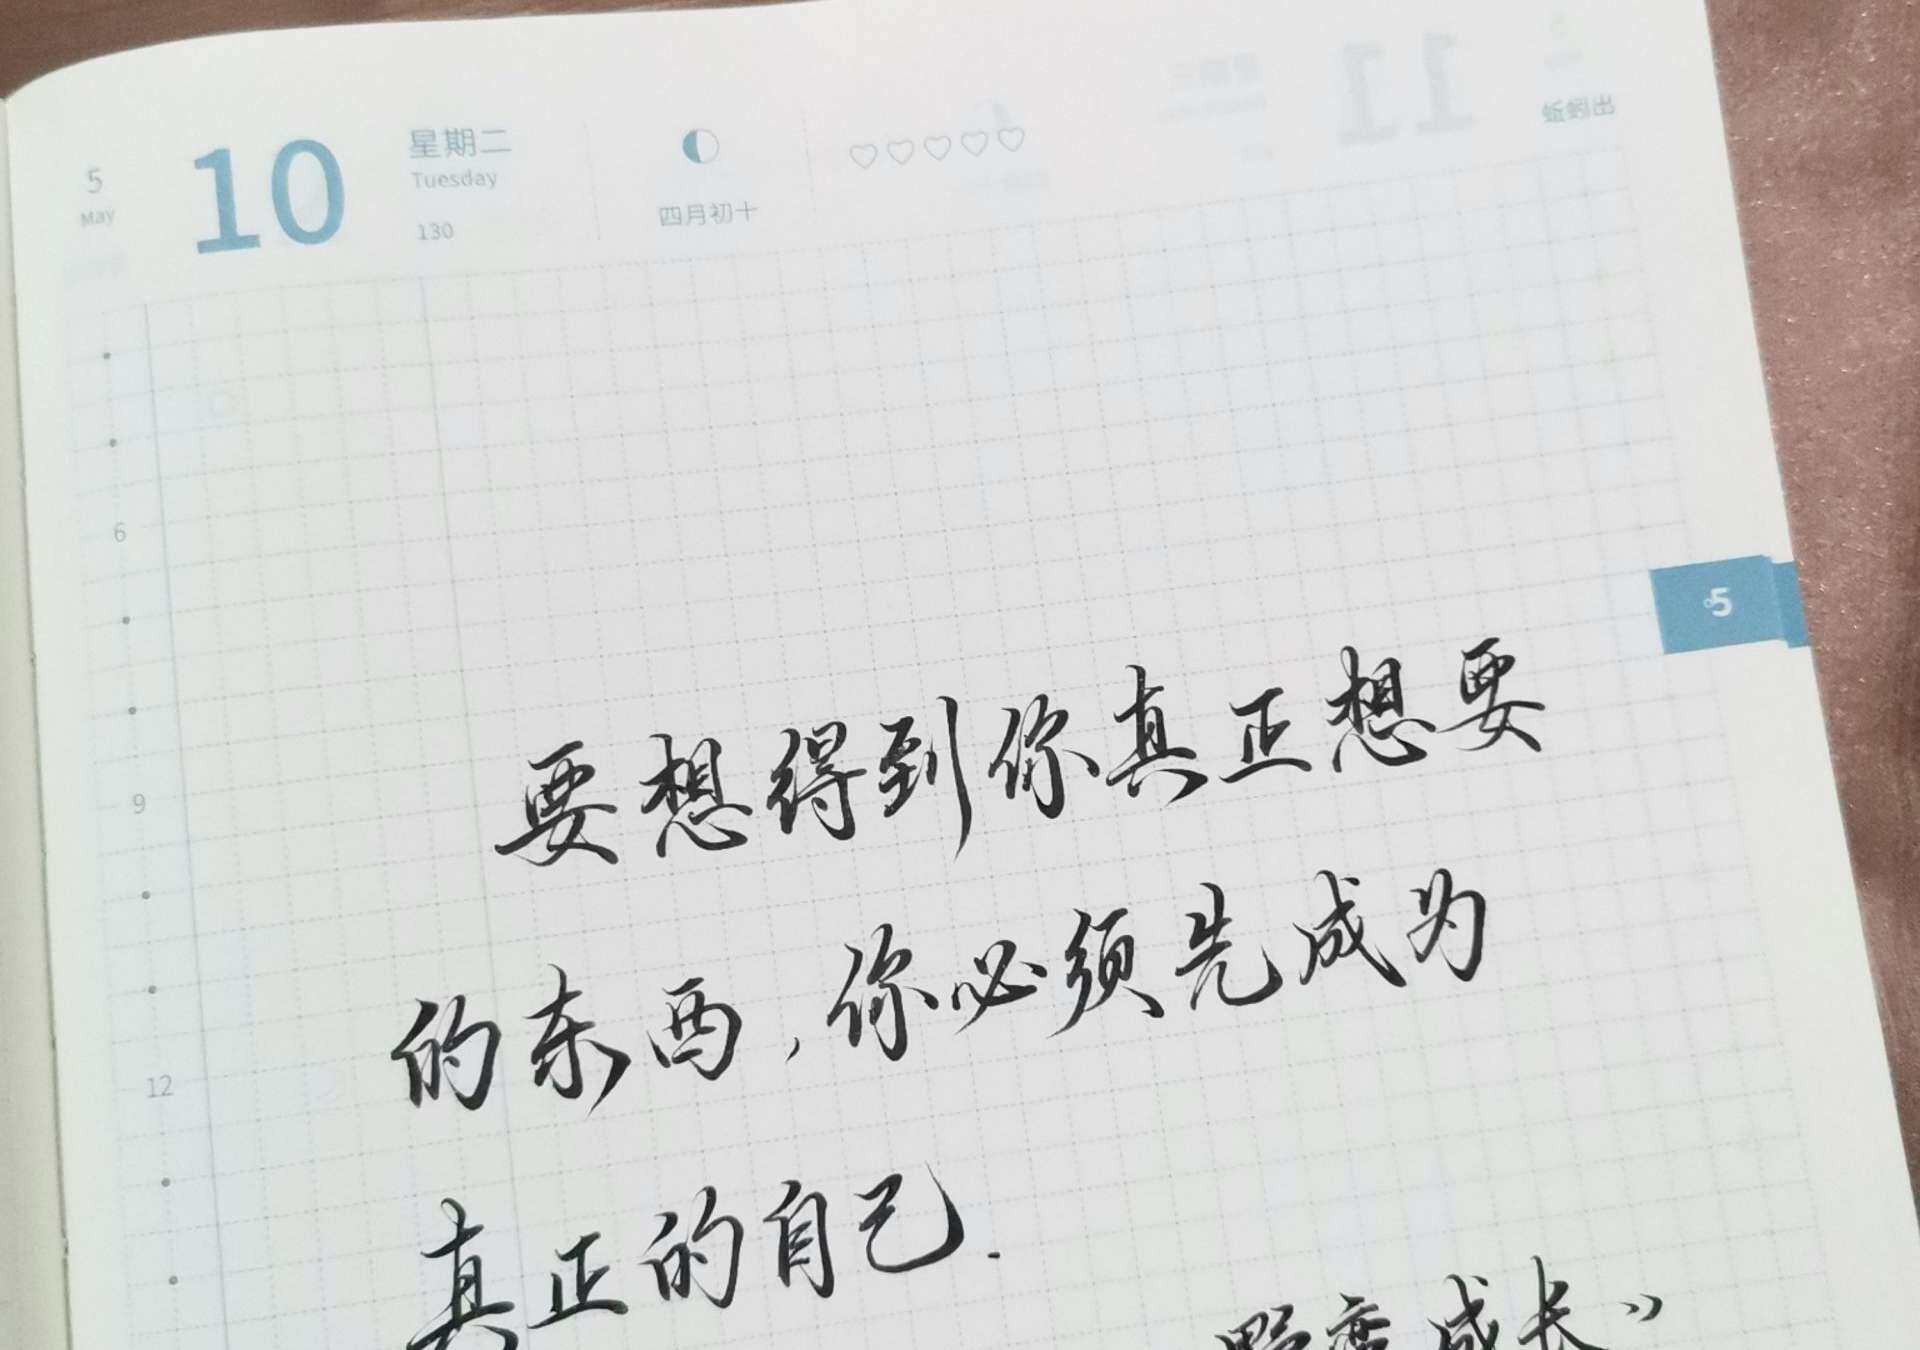 5
May
10
星期二
Tuesday
130
四月初十
11
蚯蚓出
6
9
12
5
要想得到你真正想要
的东西，你必须先成为
真正的自己.
野蛮成长”